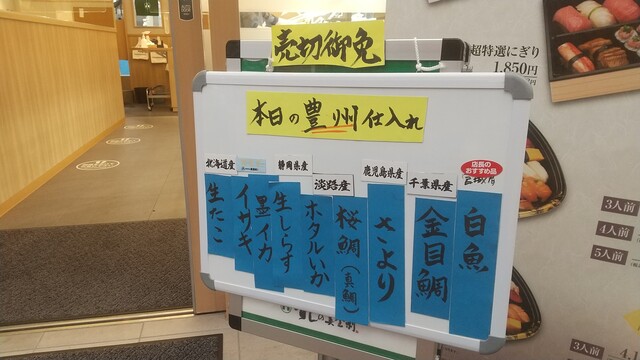 売切御免
本日の豊州仕入れ
店長の
おすすめ品
白魚
千葉県産
金目鯛
鹿児島県産
さより
淡路産
桜鯛(真鯛)
ホタルいか
静岡県産
生しらす
墨イカ
イサキ
北海道産
生たこ
超特選にぎり
1,850円
3人前
4人前
5人前
3人前